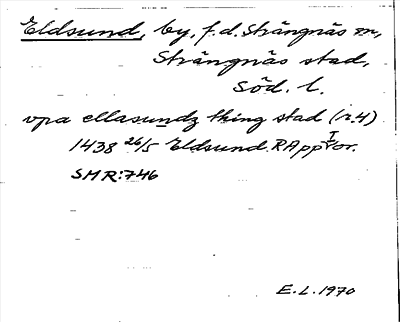 Eldsund, by, f.d. Strängnäs m,
Strängnäs stad,
Söd. l.
vpa ellasundz thing stad (r.4)
1438 26/5 Eldsund. RApp I or.
SMR:746
E.L.1970